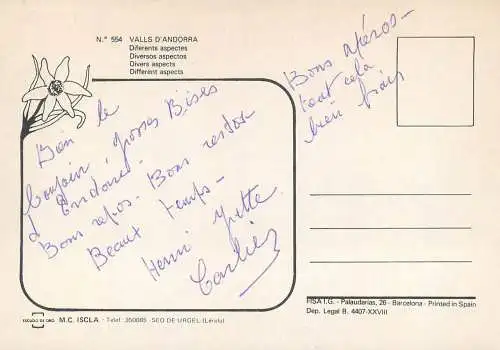 N.° 554 VALLS D'ANDORRA
Diferents aspectes
Diversos aspectos
Divers aspects
Different aspects
Bien le
bonjour, grosses Bises
d'Andorre.
Bons repos. Bons restos
Beaux temps -
Henri Yvette
Bons apéros -
tout cela
bien frais
ESCUDO DE ORO
M.C. ISCLA - Telef. 350085 - SEO DE URGEL (Lérida)
FISA I.G. - Palaudarias, 26 - Barcelona - Printed in Spain
Dep. Legal B. 4407-XXVIII